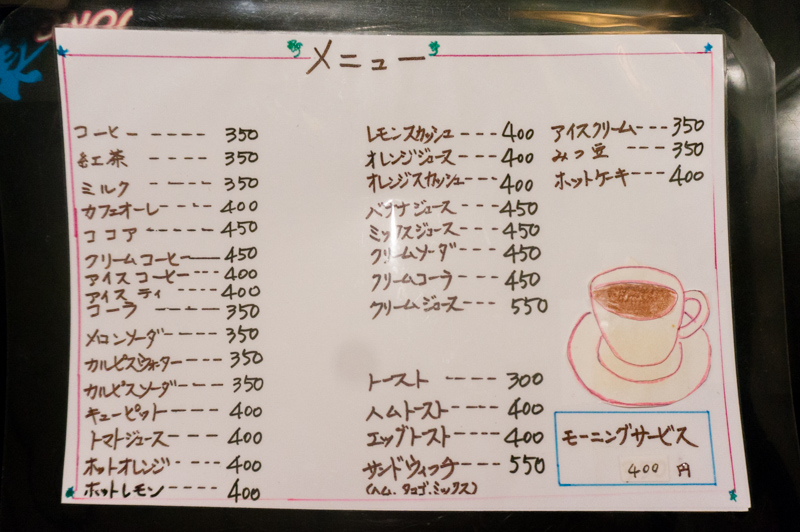 メニュー
コーヒー ---- 350
紅茶 ---- 350
ミルク ---- 350
カフェオーレ ---- 400
ココア ---- 450
クリームコーヒー ---- 450
アイスコーヒー --- 400
アイスティ --- 400
コーラ ---- 350
メロンソーダー --- 350
カルピスウォーター --- 350
カルピスソーダ --- 350
キューピット ---- 400
トマトジュース --- 400
ホットオレンジ --- 400
ホットレモン --- 400
レモンスカッシュ --- 400
オレンジジュース --- 400
オレンジスカッシュ --- 400
バナナジュース --- 450
ミックスジュース --- 450
クリームソーダ --- 450
クリームコーラ --- 450
クリームジュース --- 550
トースト ---- 300
ハムトースト ---- 400
エッグトースト ---- 400
サンドウィッチ --- 550
(ハム.タマゴ.ミックス)
アイスクリーム --- 350
みつ豆 --- 350
ホットケーキ --- 400
モーニングサービス
400 円